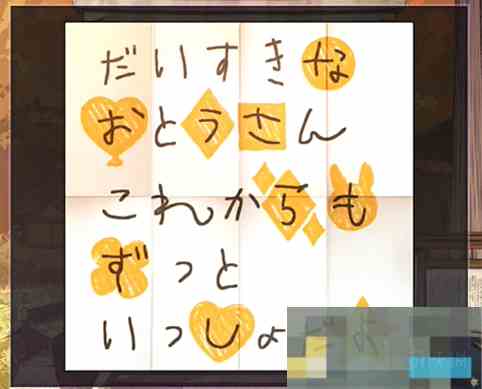 だいすきな
おとうさん
これからも
ずっと
いっしょ